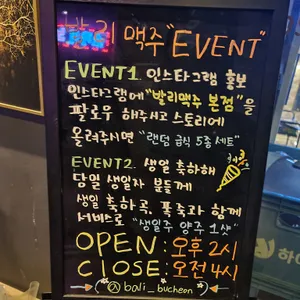 발리 맥주 "EVENT"
EVENT1. 인스타그램 홍보
인스타그램에 "발리맥주 본점"을
팔로우 해주시고 스토리에
올려주시면 "랜덤 급식 5종 세트"
EVENT2. 생일 축하해
당일 생일자 분들께
생일 축하곡, 폭죽과 함께
서비스로 "생일주 양주 1샷"
OPEN : 오후 2시
ClOSE : 오전 4시
bali_bucheon